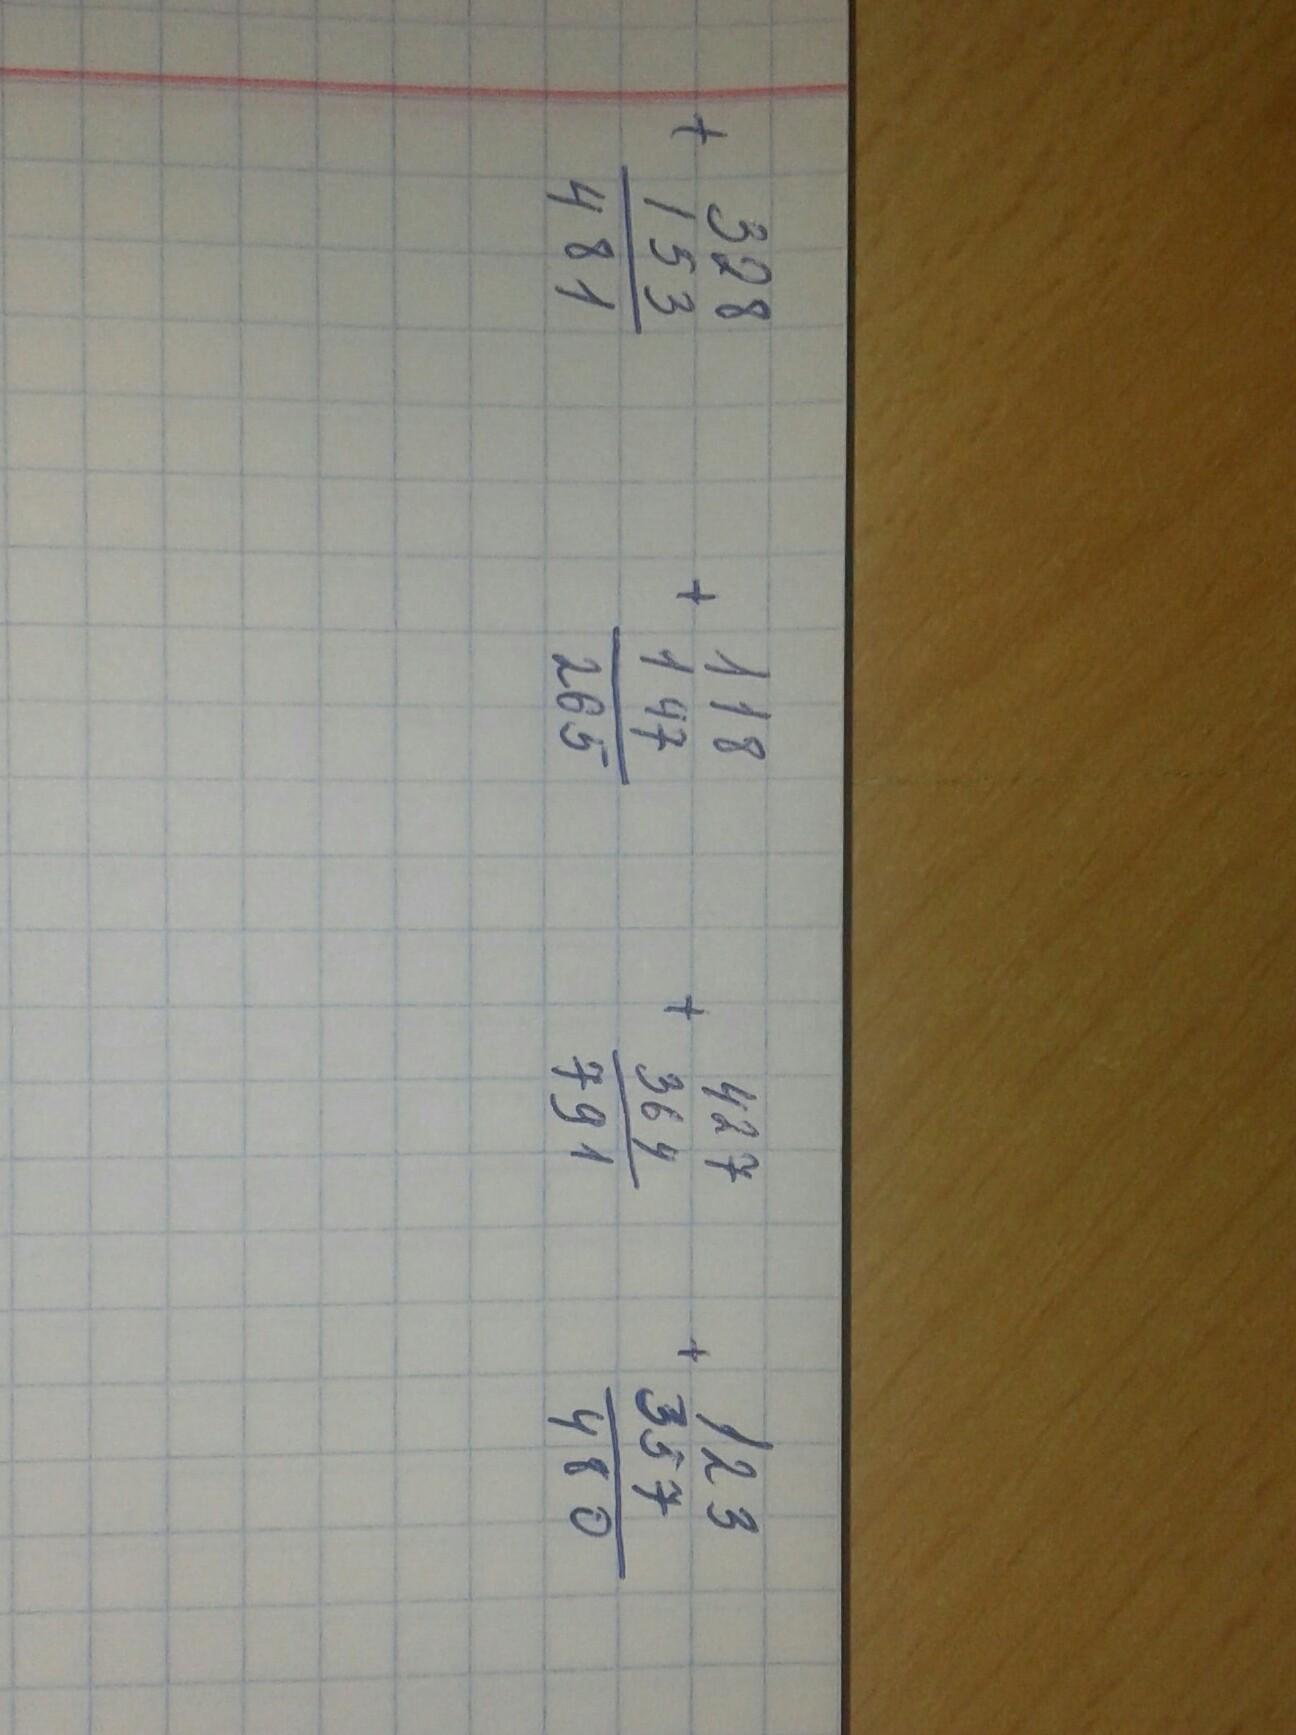 + 328
153
481
+ 118
147
265
+ 427
364
791
+ 123
357
480